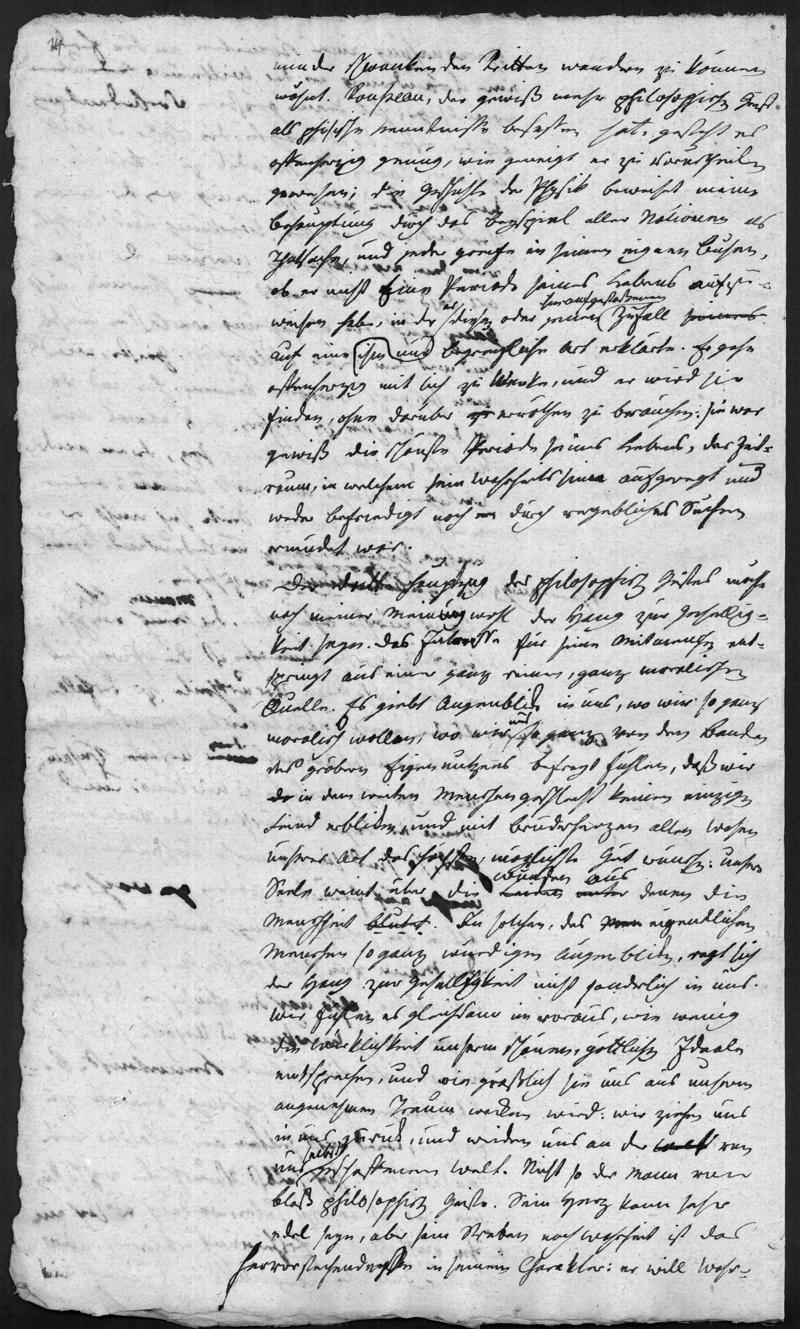 14
minder schwankenden Tritten wandern zu können
wähnt. Rousseau, der gewiß mehr philosophisch Geist
als phisische Kenntnisse besessen hat, gesteht es
offenherzig genug, wie geneigt er zu Vorurtheilen
gewesen; die Geschichte der Physik beweiset meine
Behauptung durch das Beyspiel aller Nationen als
Thatsache, und jeder greife in seinen eigenen Busen,
ob er nicht Eine Periode seines Lebens aufzu-
weisen habe, in der er diesen oder jenen ihm aufgestoßenen Zufall
auf eine ihm und begreifliche Art erklärte. Er gehe
offenherzig mit sich zu Werke, und er wird sie
finden, ohne darüber erröthen zu brauchen: sie war
gewiß die schönste Periode seines Lebens, der Zeit-
raum, in welchem sein Wahrheitssinn aufgeregt und
weder befriedigt noch durch vergebliches Suchen
ermüdet war.
Der dritte Hauptzug des philosophisch Geistes möchte
nach meiner Meinung wohl der Hang zur Gesellig-
keit seyn. Das Interesse für seine Mitmenschen ent-
springt aus einer ganz reinen, ganz moralischen
Quelle. Es giebt Augenblicke in uns, wo wir so ganz
moralisch wollen, wo wir uns so ganz von den Banden
des gröbern Eigennutzens befreyt fühlen, daß wir
in dem weiten Menschengeschlecht keinen einzigen
Feind erblicken, und mit Bruderherzen allen Wesen
unserer Art das höchste, möglichste Gut wünschen: unsere
Seele weint über die Wunden aus denen die
Menschheit blutet. In solchen, des eigentlichen
Menschen so ganz würdigen Augenblicken, regt sich
der Hang zur Geselligkeit nicht sonderlich in uns.
Wir fühlen es gleichsam im voraus, wie wenig
die Wirklichkeit unserm schönen, göttlichen Ideale
entsprechen, und wie gräßlich sie uns aus unserm
angenehmen Traum wecken wird: wir ziehen uns
in uns zurück, und weiden uns an der von
uns selbst geschaffenen Welt. Nicht so der Mann von
bloß philosophisch Geiste. Sein Herz kann sehr
edel seyn, aber sein Streben nach Wahrheit ist das
hervorstechendste in seinem Charakter: er will Wahr-